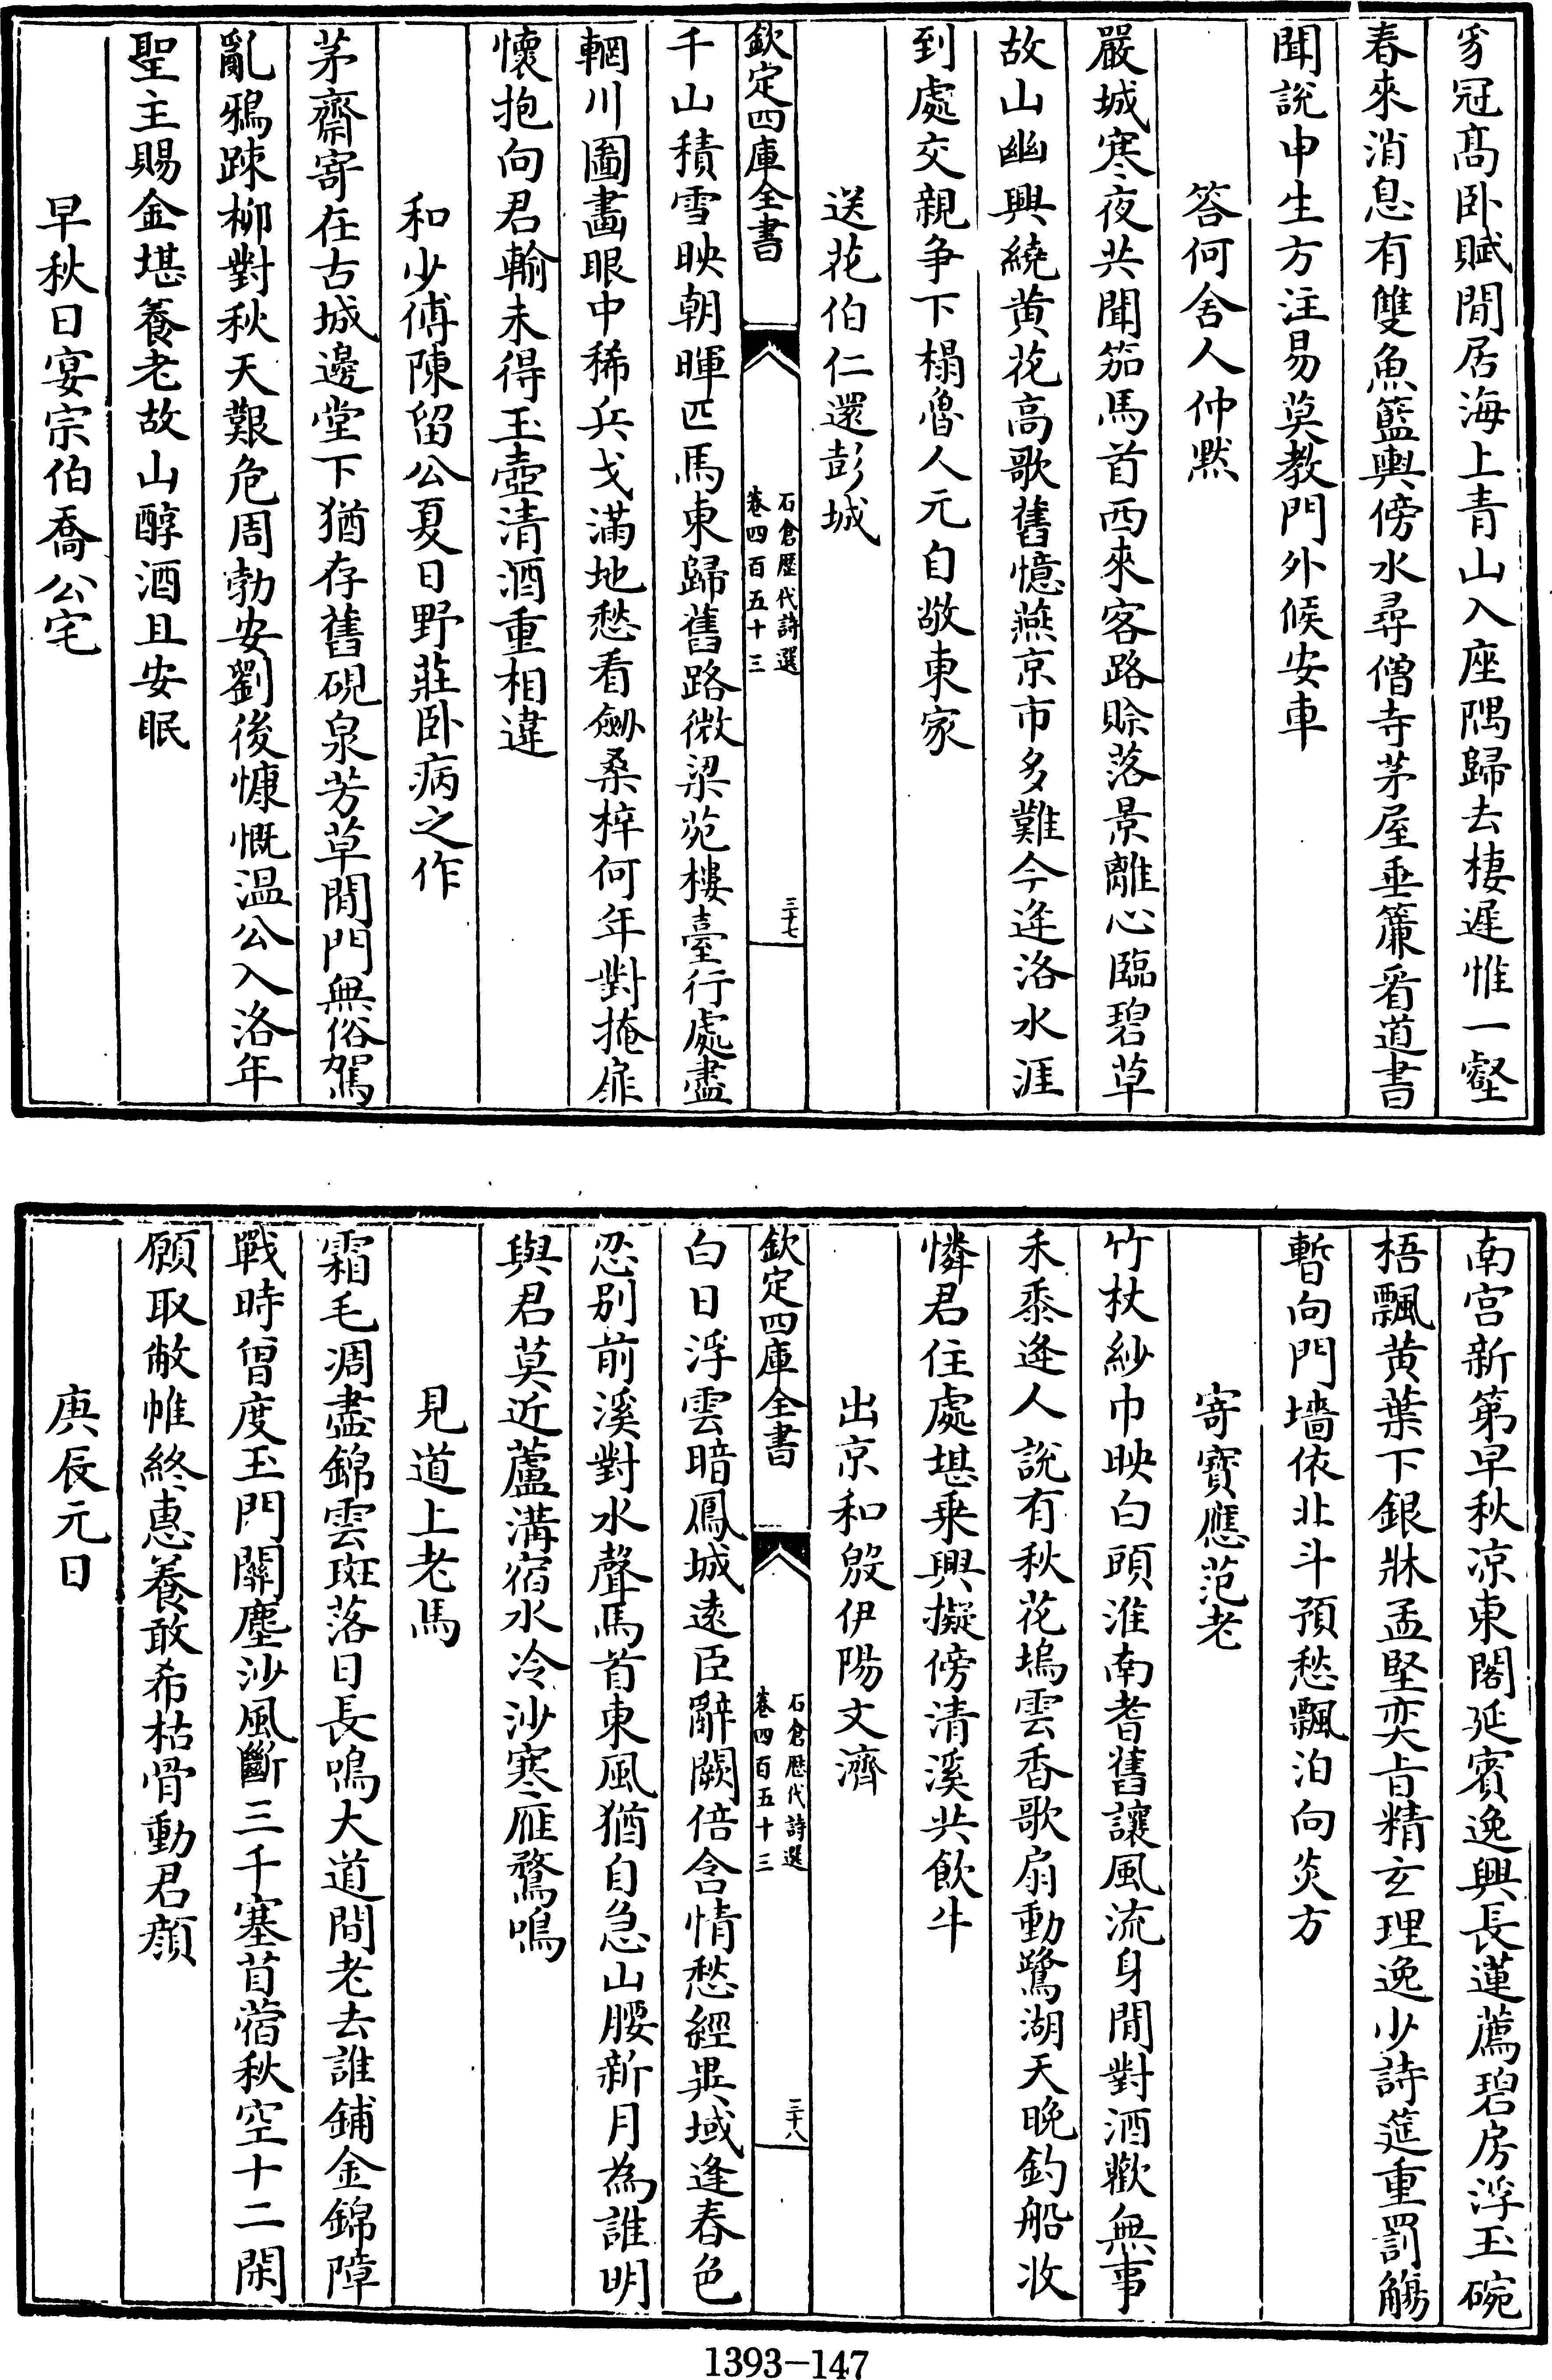 豸冠髙卧賦閒居海上青山入座隅歸去棲遲惟一壑
春來消息有雙魚籃輿傍水尋僧寺茅屋垂簾看道書
聞説申生方注易莫教門外候安車
答何舍人仲黙
嚴城寒夜共聞笳馬首西來客路賒落景離心臨碧草
故山幽興繞黄花高歌舊憶燕京市多難今逢洛水涯
到處交親争下榻魯人元自敬東家
送花伯仁還彭城
欽定四庫全書
石倉歴代詩選
卷四百五十三
三十七
千山積雪映朝暉匹馬東歸舊路微梁苑樓臺行處盡
輞川圖畵眼中稀兵戈滿地愁看劒桑梓何年對掩扉
懐抱向君輸未得玉壺清酒重相違
和少傅陳留公夏日野莊卧病之作
茅齋寄在古城邊堂下猶存舊硯泉芳草閒門無俗駕
亂鴉踈柳對秋天艱危周勃安劉後慷慨温公入洛年
聖主賜金堪養老故山醇酒且安眠
早秋日宴宗伯喬公宅
南宫新第早秋凉東閣延賓逸興長蓮薦碧房浮玉碗
梧飄黄葉下銀牀孟堅奕旨精玄理逸少詩筵重罰觴
暫向門墻依北斗預愁飄泊向炎方
寄寳應范老
竹杖紗巾映白頭淮南耆舊讓風流身閒對酒歡無事
禾黍逢人説有秋花塢雲香歌扇動鷺湖天晚釣船收
憐君住處堪乗興擬傍清溪共飲牛
出京和殷伊陽文濟
欽定四庫全書
石倉歴代詩選
卷四百五十三
三十八
白日浮雲暗鳳城逺臣辭闕倍含情愁經異域逢春色
忍别前溪對水聲馬首東風猶自急山腰新月為誰明
與君莫近蘆溝宿水冷沙寒雁鶩鳴
見道上老馬
霜毛凋盡錦雲斑落日長鳴大道間老去誰鋪金錦障
戰時曽度玉門關塵沙風斷三千塞苜蓿秋空十二閑
願取敝帷終惠養敢希枯骨動君顔
庚辰元日
1393-147